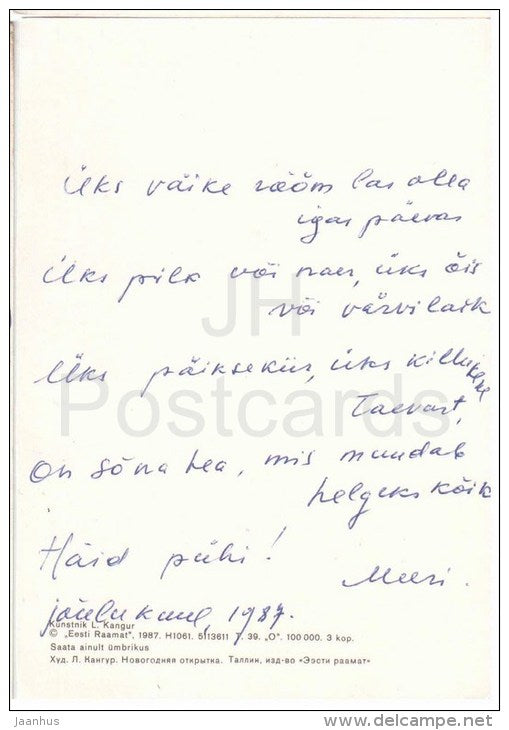 Üks väike rõõm las olla
igas päevas
Üks pilk või naer, üks õis
või värvilaik
Üks päiksekiir, üks killukene
Taevast,
On sõna hea, mis muudab
helgeks kõik
Häid pühi!
Meeri.
jõulukuul, 1987.
Kunstnik L. Kangur
© „Eesti Raamat", 1987. H1061. 5113611 T. 39. „O". 100 000. 3 kop.
Saata ainult ümbrikus
Худ. Л. Кангур. Новогодняя открытка. Таллин, изд-во «Ээсти раамат»
JH
Postcards
jaanhus
www.delcampe.net